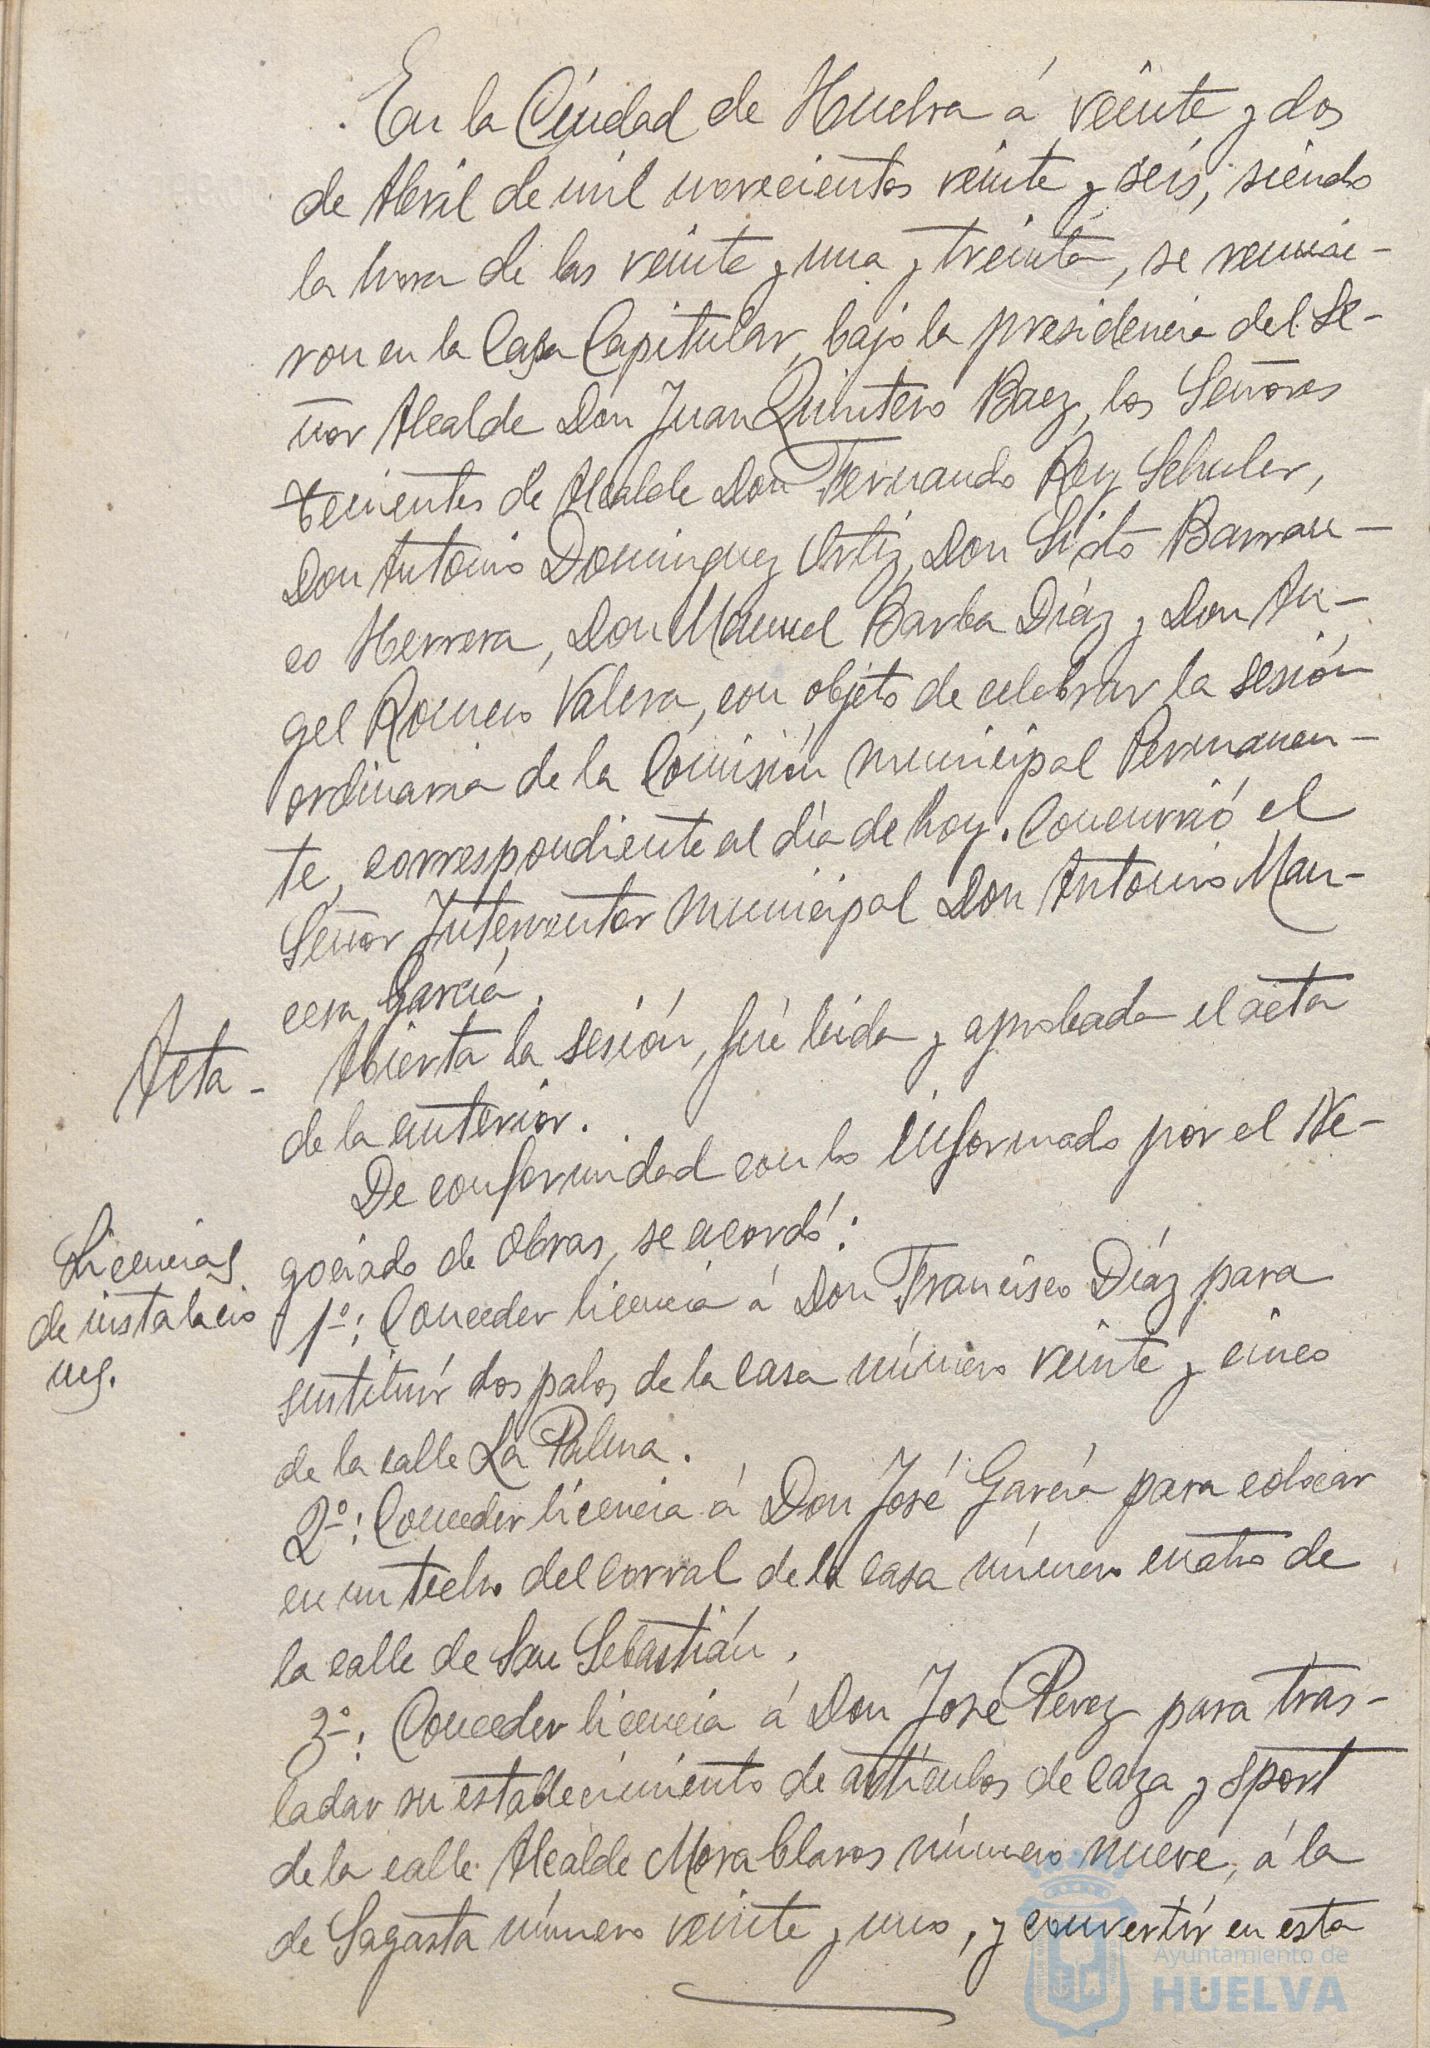 En la Ciudad de Huelva á veinte y dos
de Abril de mil novecientos veinte y seis, siendo
la hora de las veinte y una y treinta, se reunie-
ron en la Casa Capitular, bajo la presidencia del Se-
ñor Alcalde Don Juan Quintero Baez, los Señores
tenientes de Alcalde Don Fernando Rey Schuler,
Don Antonio Dominguez Ortiz, Don Sisto Barran-
co Herrera, Don Manuel Barba Díaz y Don An-
gel Romero Valera, con objeto de celebrar la sesión
ordinaria de la Comisión municipal Permanen-
te, correspondiente al día de hoy. Concurrió el
Señor Interventor municipal Don Antonio Man-
cera García.
Acta - Abierta la sesión, fué leida y aprobada el acta
de la anterior.
De conformidad con lo informado por el Ne-
Licencias
gociado de Obras, se acordó:
de instalacio
1º: Conceder licencia á Don Francisco Díaz para
nes.
sustituír dos palos de la casa número veinte y cinco
de la calle La Palma.
2º: Conceder licencia á Don José García para colocar
en un techo del corral de la casa número cuatro de
la calle de San Sebastián.
3º: Conceder licencia á Don José Perez para tras-
ladar su establecimiento de artículos de caza y sport
de la calle Alcalde Mora Claros número nueve, á la
de Sagasta número veinte y uno, y convertír en esta
Ayuntamiento de
HUELVA